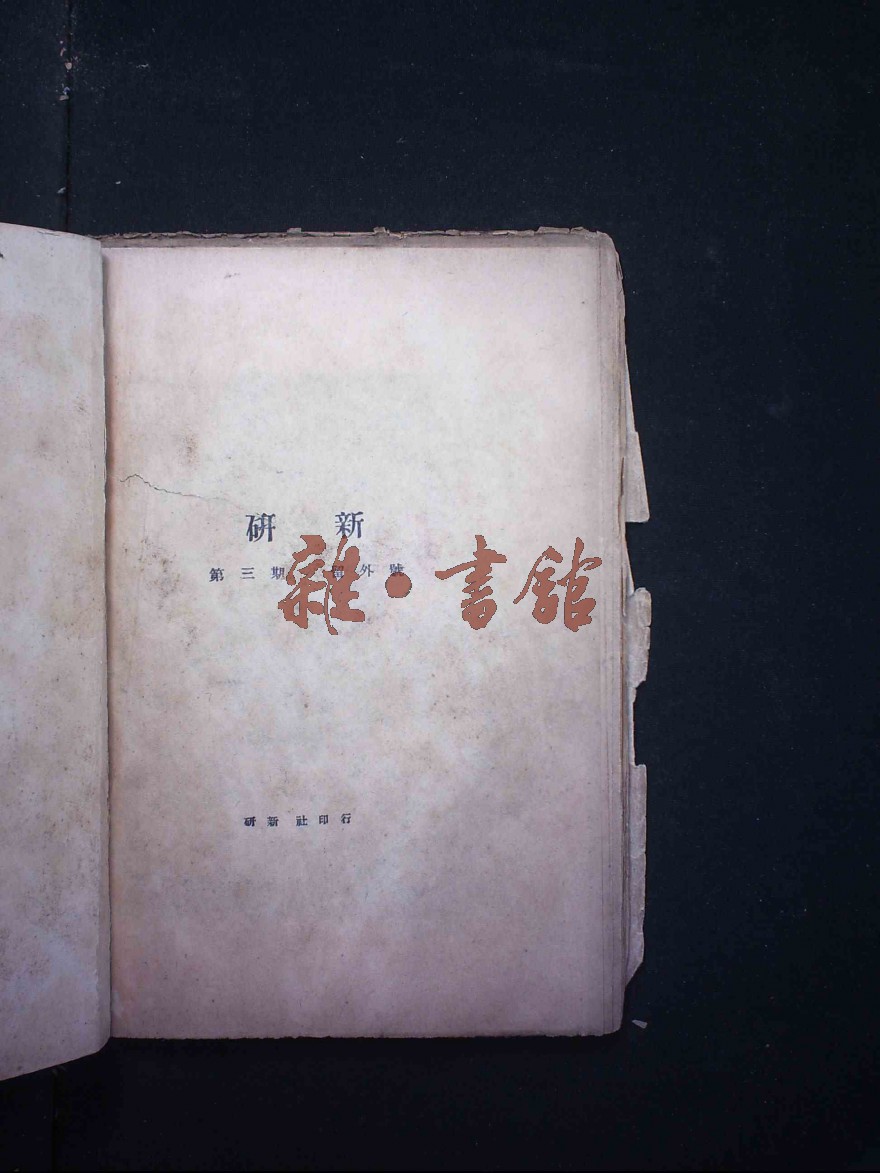 研新
第三期 外號
雜•書館
研新社印行